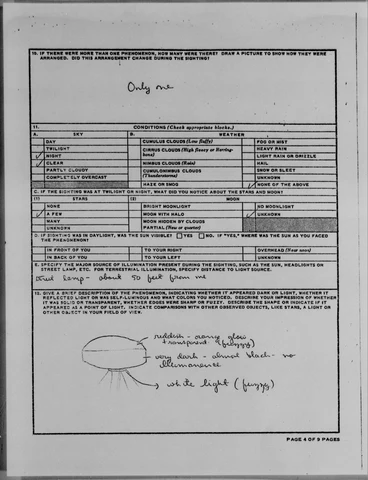 10. IF THERE WERE MORE THAN ONE PHENOMENON, HOW MANY WERE THERE? DRAW A PICTURE TO SHOW HOW THEY WERE
ARRANGED. DID THIS ARRANGEMENT CHANGE DURING THE SIGHTING?
Only one
11. CONDITIONS (Check appropriate blocks.)
A. SKY B. WEATHER
DAY CUMULUS CLOUDS (Low fluffy) FOG OR MIST
TWILIGHT CIRRUS CLOUDS (High fleecy or Herring- HEAVY RAIN
NIGHT bone) LIGHT RAIN OR DRIZZLE
CLEAR NIMBUS CLOUDS (Rain) HAIL
PARTLY CLOUDY CUMULONIMBUS CLOUDS SNOW OR SLEET
COMPLETELY OVERCAST (Thunderstorms) UNKNOWN
HAZE OR SMOG NONE OF THE ABOVE
C. IF THE SIGHTING WAS AT TWILIGHT OR NIGHT, WHAT DID YOU NOTICE ABOUT THE STARS AND MOON?
(1) STARS (2) MOON
NONE BRIGHT MOONLIGHT NO MOONLIGHT
A FEW MOON WITH HALO UNKNOWN
MANY MOON HIDDEN BY CLOUDS
UNKNOWN PARTIAL (New or quarter)
D. IF SIGHTING WAS IN DAYLIGHT, WAS THE SUN VISIBLE? YES NO. IF "YES," WHERE WAS THE SUN AS YOU FACED
THE PHENOMENON?
IN FRONT OF YOU TO YOUR RIGHT OVERHEAD (Near noon)
IN BACK OF YOU TO YOUR LEFT UNKNOWN
E. SPECIFY THE MAJOR SOURCE OF ILLUMINATION PRESENT DURING THE SIGHTING, SUCH AS THE SUN, HEADLIGHTS OR
STREET LAMP, ETC. FOR TERRESTRIAL ILLUMINATION, SPECIFY DISTANCE TO LIGHT SOURCE.
lamp - about 50 feet from me
12. GIVE A BRIEF DESCRIPTION OF THE PHENOMENON, INDICATING WHETHER IT APPEARED DARK OR LIGHT, WHETHER IT
REFLECTED LIGHT OR WAS SELF-LUMINOUS AND WHAT COLORS YOU NOTICED. DESCRIBE YOUR IMPRESSION OF WHETHER
IT WAS SOLID OR TRANSPARENT, WHETHER EDGES WERE SHARP OR FUZZY. DESCRIBE THE SHAPE OR INDICATE IF IT
APPEARED AS A POINT OF LIGHT. INDICATE COMPARISONS WITH OTHER OBSERVED OBJECTS, LIKE STARS, A LIGHT OR
OTHER OBJECT IN YOUR FIELD OF VIEW.
reddish - orange glow
transparent (fuzzy)
very dark - almost black - no
white light (fuzzy)
PAGE 4 OF 9 PAGES